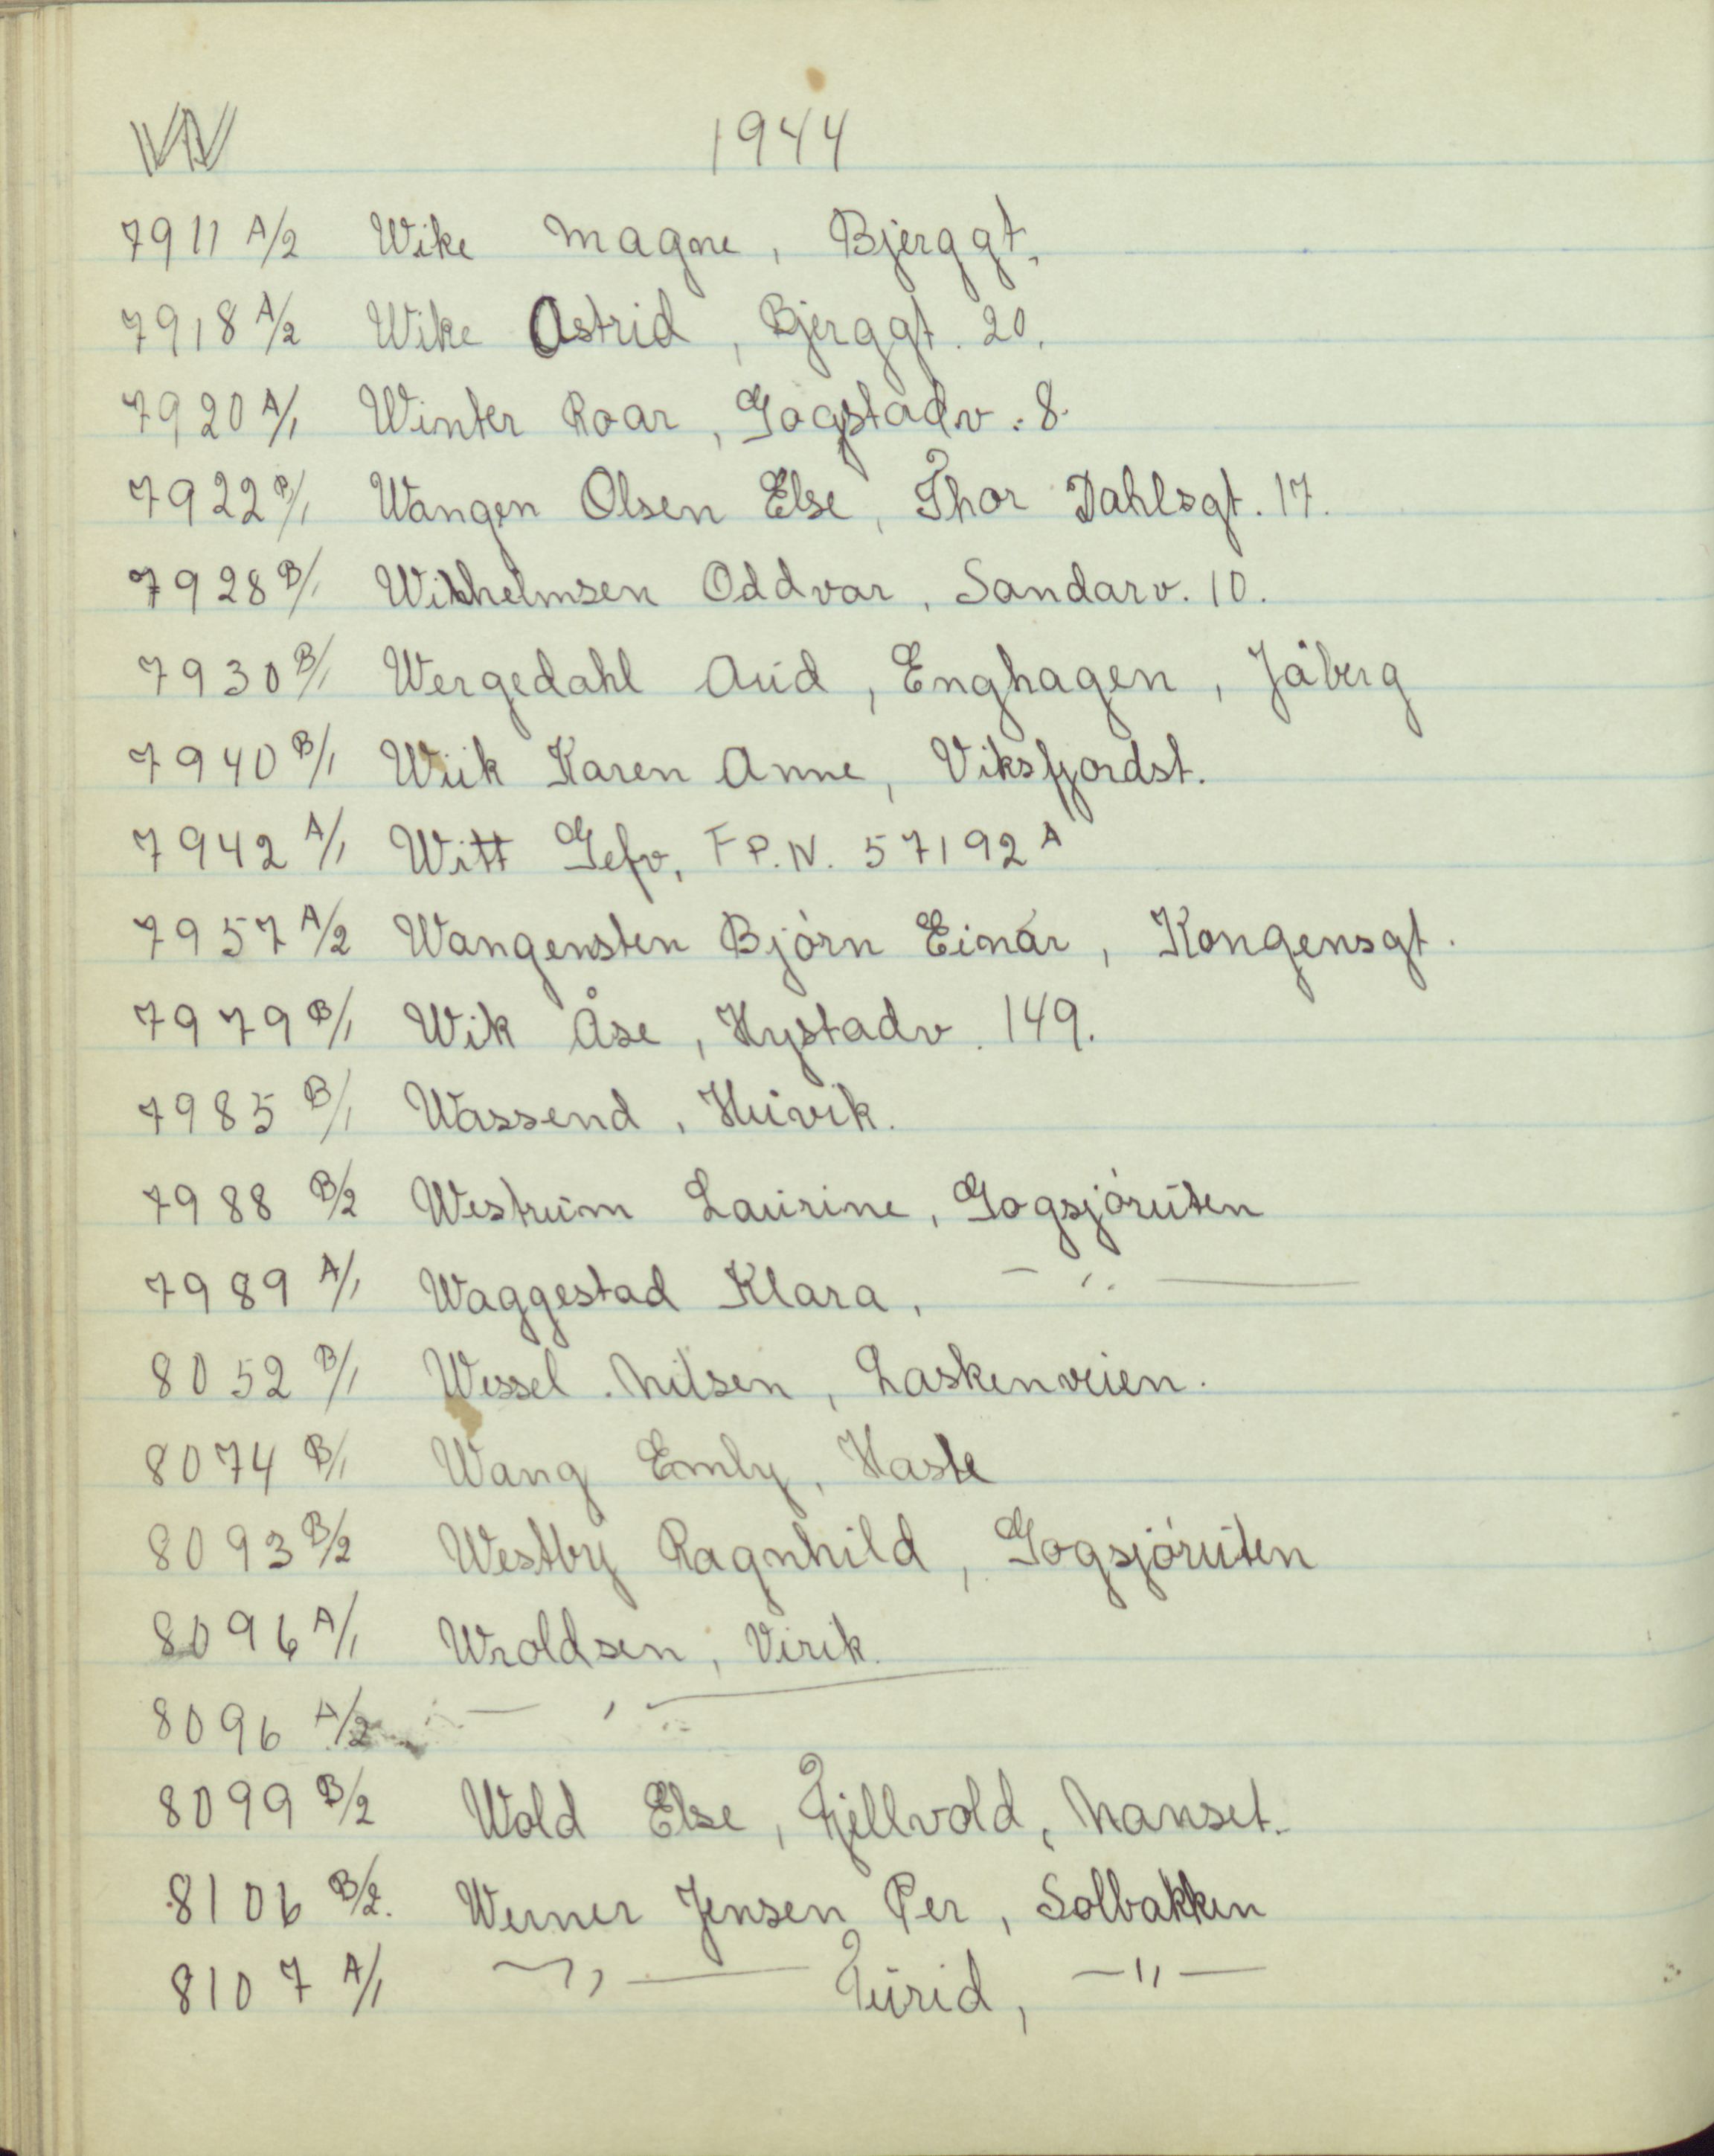 W 1944
7911 A/2 Wike Magne, Bjerggt.
7918 A/2 Wike Astrid, Bjerggt. 20.
7920 A/1 Winter Roar, Gogstadv. 8.
7922 B/1 Wangen Olsen Else, Thor Dahlsgt. 17.
7928 B/1 Wilhelmsen Oddvar, Sandarv. 10.
7930 B/1 Wergedahl Aud, Enghagen, Jåberg
7940 B/1 Wiik Karen Anne, Viksfjordst.
7942 A/1 Witt Gefr, F.P.N. 57192 A
7957 A/2 Wangensten Björn Einar, Kongensgt.
7979 B/1 Wik Åse, Hystadv. 149.
7985 B/1 Wassend, Huvik.
7988 B/2 Westrum Laurine, Gogsjóruten
7989 A/1 Waggestad Klara, — " —
8052 B/1 Wessel Nilsen, Laskenveien.
8074 B/1 Wang Emly, Hasle
8093 B/2 Westby Ragnhild, Gogsjóruten
8096 A/1 Wroldsen, Virik.
8096 A/2 — " —
8099 B/2 Wold Else, Fjellvold, Nanset.
8106 B/2. Werner Jensen Per, Solbakken
8107 A/1 — " — Turid, — " —